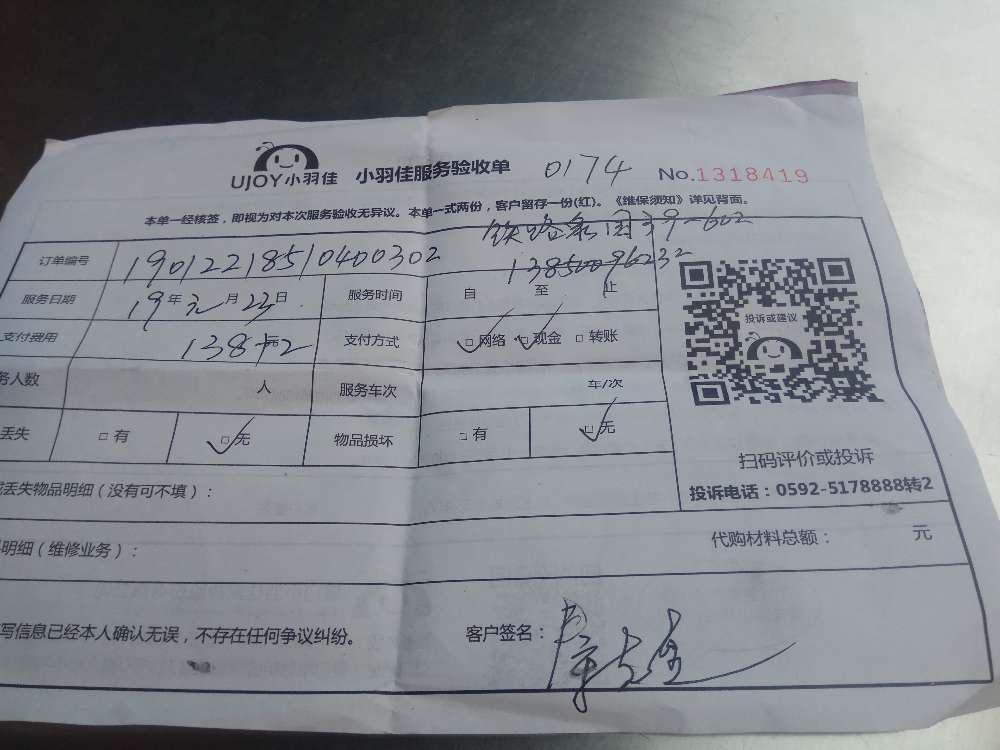 UJOY小羽佳 小羽佳服务验收单 0174 No.1318419
本单一经核签，即视为对本次服务验收无异议。本单一式两份，客户留存一份(红)。《维保须知》详见背面。
39-602
订单编号 19012218510400302
服务日期 19年元月23日 服务时间 自 至 止
支付费用 138+2 支付方式 □网络 □现金 □转账
投诉或建议
务人数 人 服务车次 车/次
丢失 □有 □无 物品损坏 □有 □无
扫码评价或投诉
丢失物品明细（没有可不填）：
投诉电话：0592-5178888转2
明细（维修业务）： 代购材料总额： 元
写信息已经本人确认无误，不存在任何争议纠纷。 客户签名：